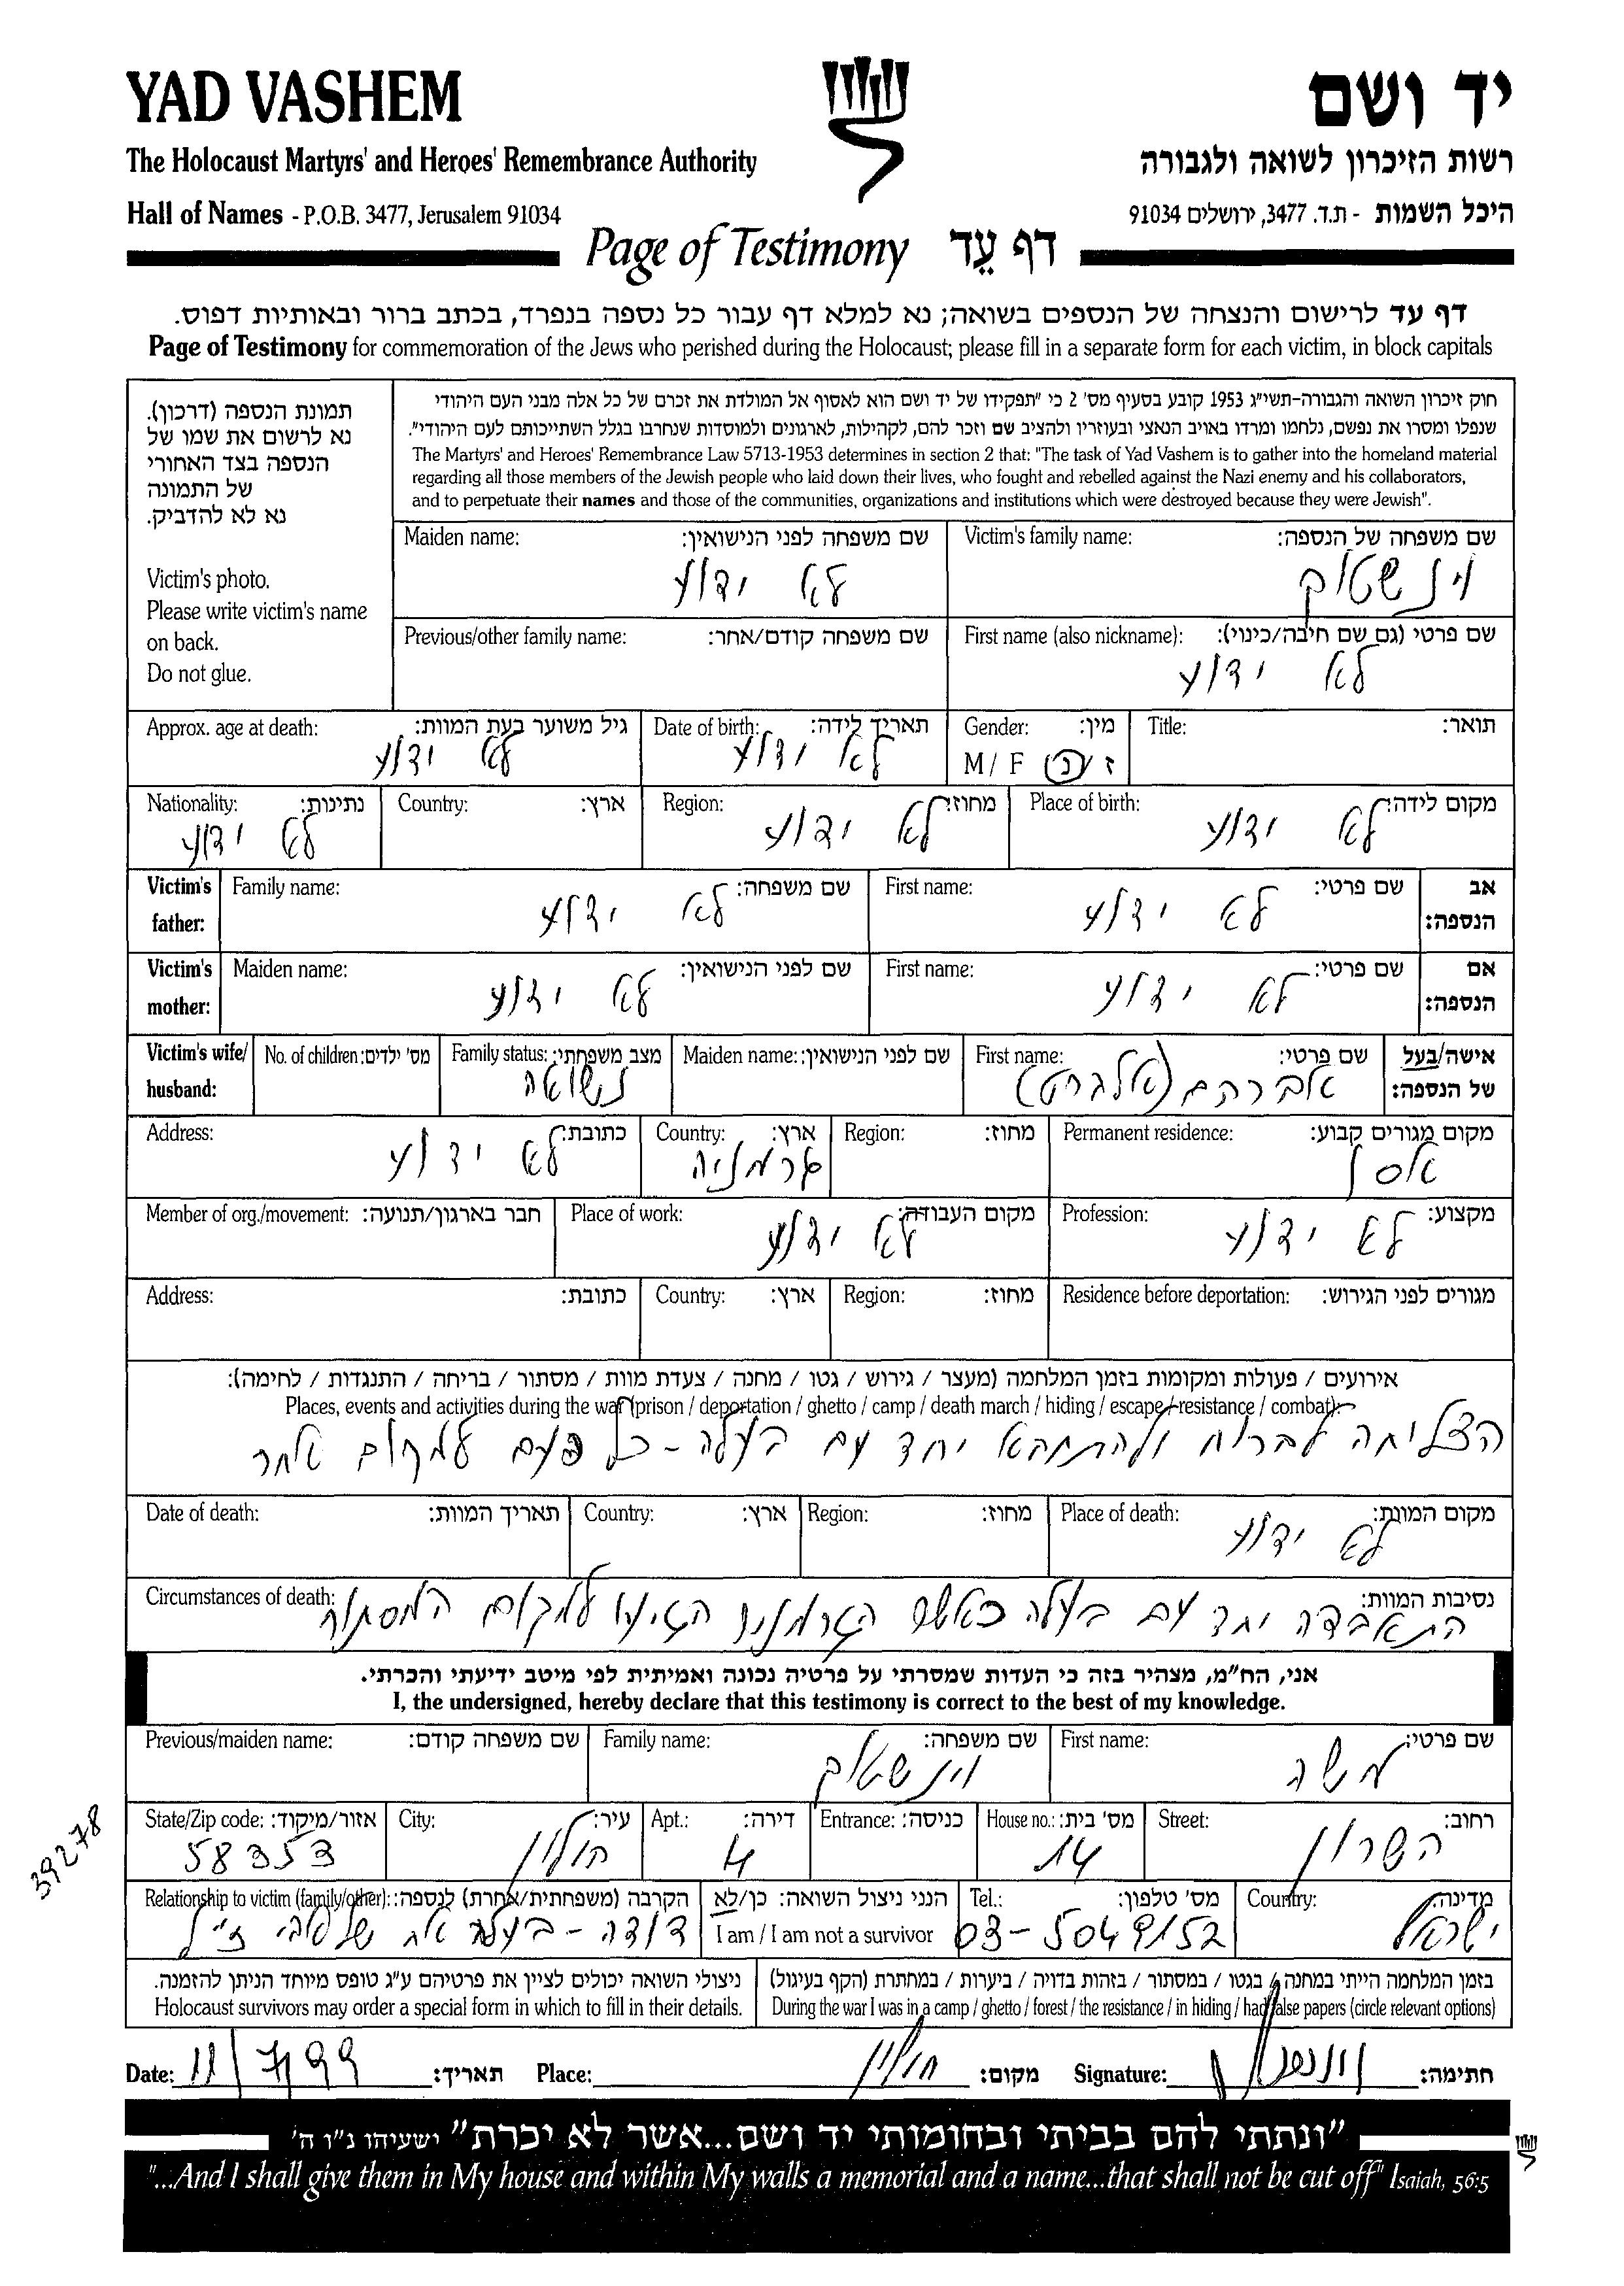 YAD VASHEM
יד ושם
The Holocaust Martyrs' and Heroes' Remembrance Authority
רשות הזיכרון לשואה ולגבורה
Hall of Names - P.O.B. 3477, Jerusalem 91034
היכל השמות - ת.ד. 3477, ירושלים 91034
Page of Testimony דף עֵד
דף עד לרישום והנצחה של הנספים בשואה; נא למלא דף עבור כל נספה בנפרד, בכתב ברור ובאותיות דפוס.
Page of Testimony for commemoration of the Jews who perished during the Holocaust; please fill in a separate form for each victim, in block capitals
תמונת הנספה (דרכון).
נא לרשום את שמו של
הנספה בצד האחורי
של התמונה
נא לא להדביק.
Victim's photo.
Please write victim's name
on back.
Do not glue.
חוק זיכרון השואה והגבורה-תשי"ג 1953 קובע בסעיף מס' 2 כי "תפקידו של יד ושם הוא לאסוף אל המולדת את זכרם של כל אלה מבני העם היהודי
שנפלו ומסרו את נפשם, נלחמו ומרדו באויב הנאצי ובעוזריו ולהציב שם וזכר להם, לקהילות, לארגונים ולמוסדות שנחרבו בגלל השתייכותם לעם היהודי".
The Martyrs' and Heroes' Remembrance Law 5713-1953 determines in section 2 that: "The task of Yad Vashem is to gather into the homeland material
regarding all those members of the Jewish people who laid down their lives, who fought and rebelled against the Nazi enemy and his collaborators,
and to perpetuate their names and those of the communities, organizations and institutions which were destroyed because they were Jewish".
שם משפחה של הנספה: Victim's family name:
וינשטוק
שם משפחה לפני הנישואין: Maiden name:
לא ידוע
שם פרטי (גם שם חיבה/כינוי): First name (also nickname):
לא ידוע
שם משפחה קודם/אחר: Previous/other family name:
תואר: Title:
מין: Gender:
ז / נ M / F
תאריך לידה: Date of birth:
לא ידוע
גיל משוער בעת המוות: Approx. age at death:
לא ידוע
מקום לידה: Place of birth:
לא ידוע
מחוז: Region:
לא ידוע
ארץ: Country:
נתינות: Nationality:
לא ידוע
אב הנספה: Victim's father:
שם פרטי: First name:
לא ידוע
שם משפחה: Family name:
לא ידוע
אם הנספה: Victim's mother:
שם פרטי: First name:
לא ידוע
שם לפני הנישואין: Maiden name:
לא ידוע
אישה/בעל של הנספה: Victim's wife/ husband:
שם פרטי: First name:
אברהם (אלברט)
שם לפני הנישואין: Maiden name:
מצב משפחתי: Family status:
נשואה
מס' ילדים: No. of children:
מקום מגורים קבוע: Permanent residence:
אסן
מחוז: Region:
ארץ: Country:
גרמניה
כתובת: Address:
לא ידוע
מקצוע: Profession:
לא ידוע
מקום העבודה: Place of work:
לא ידוע
חבר בארגון/תנועה: Member of org./movement:
מגורים לפני הגירוש: Residence before deportation:
מחוז: Region:
ארץ: Country:
כתובת: Address:
אירועים / פעולות ומקומות בזמן המלחמה (מעצר / גירוש / גטו / מחנה / צעדת מוות / מסתור / בריחה / התנגדות / לחימה):
Places, events and activities during the war (prison / deportation / ghetto / camp / death march / hiding / escape / resistance / combat):
הצליחה לברוח ולהתחבא יחד עם בעלה - כל פעם למקום אחר
מקום המוות: Place of death:
לא ידוע
מחוז: Region:
ארץ: Country:
תאריך המוות: Date of death:
נסיבות המוות: Circumstances of death:
התאבדה יחד עם בעלה כאשר הגרמנים הגיעו למקום המסתור
אני, הח"מ, מצהיר בזה כי העדות שמסרתי על פרטיה נכונה ואמיתית לפי מיטב ידיעתי והכרתי.
I, the undersigned, hereby declare that this testimony is correct to the best of my knowledge.
שם פרטי: First name:
משה
שם משפחה: Family name:
וינשטוק
שם משפחה קודם: Previous/maiden name:
רחוב: Street:
השרון
מס' בית: House no.:
14
כניסה: Entrance:
דירה: Apt.:
4
עיר: City:
חולון
אזור/מיקוד: State/Zip code:
58353
39278
מדינה: Country:
ישראל
מס' טלפון: Tel.:
03-5049152
הנני ניצול השואה: כן/לא
I am / I am not a survivor
הקרבה (משפחתית/אחרת) לנספה: Relationship to victim (family/other):
דודה - בעלה אח של אבי ז"ל
בזמן המלחמה הייתי במחנה / בגטו / במסתור / בזהות בדויה / ביערות / במחתרת (הקף בעיגול)
During the war I was in a camp / ghetto / forest / the resistance / in hiding / had false papers (circle relevant options)
ניצולי השואה יכולים לציין את פרטיהם ע"ג טופס מיוחד הניתן להזמנה.
Holocaust survivors may order a special form in which to fill in their details.
Date: 11/7/99 תאריך: Place: חולון מקום: Signature: חתימה:
"ונתתי להם בביתי ובחומותי יד ושם...אשר לא יכרת" ישעיהו נ"ו ה'
"...And I shall give them in My house and within My walls a memorial and a name...that shall not be cut off" Isaiah, 56:5